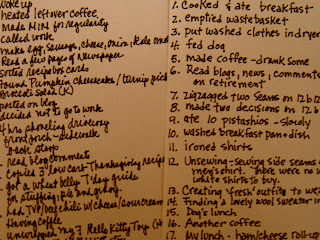 woke up
heated leftover coffee
Made MiM for regularity
called work
make egg, sausage, cheese, onion, Kale
Read a few pages of Newspaper
sorted recipe cards
found Pumpkin Cheesecake / turnip
Broccoli Salad (K)
posted on blog
decided not to go to work
4 hrs
front porch - sidewalk
Desk
read blog comments
Copied 3 low carb Thanksgiving
got a wheat belly T'day guide
on stuffing,
had w/ cheese/sour cream
Having coffee
unwrapped my 7 Hello Kitty Toy
1. Cooked & ate breakfast
2. emptied wastebasket
3. put washed clothes in dryer
4. fed dog
5. made coffee - drank some
6. Read blogs, news, comments
on retirement
7. zigzagged two seams on 12b
8. made two decisions in 12b
9. ate 10 pistachios - slowly
10. washed breakfast pan & dish
11. ironed shirts
12. Unsewing - sewing side seams
men's shirt. There were no
white shirts to buy.
13. Creating "fresh" outfit to
14. Finding a lovely wool sweater in
15. Dog's lunch
16. Another coffee
17. My lunch - ham/cheese roll-up